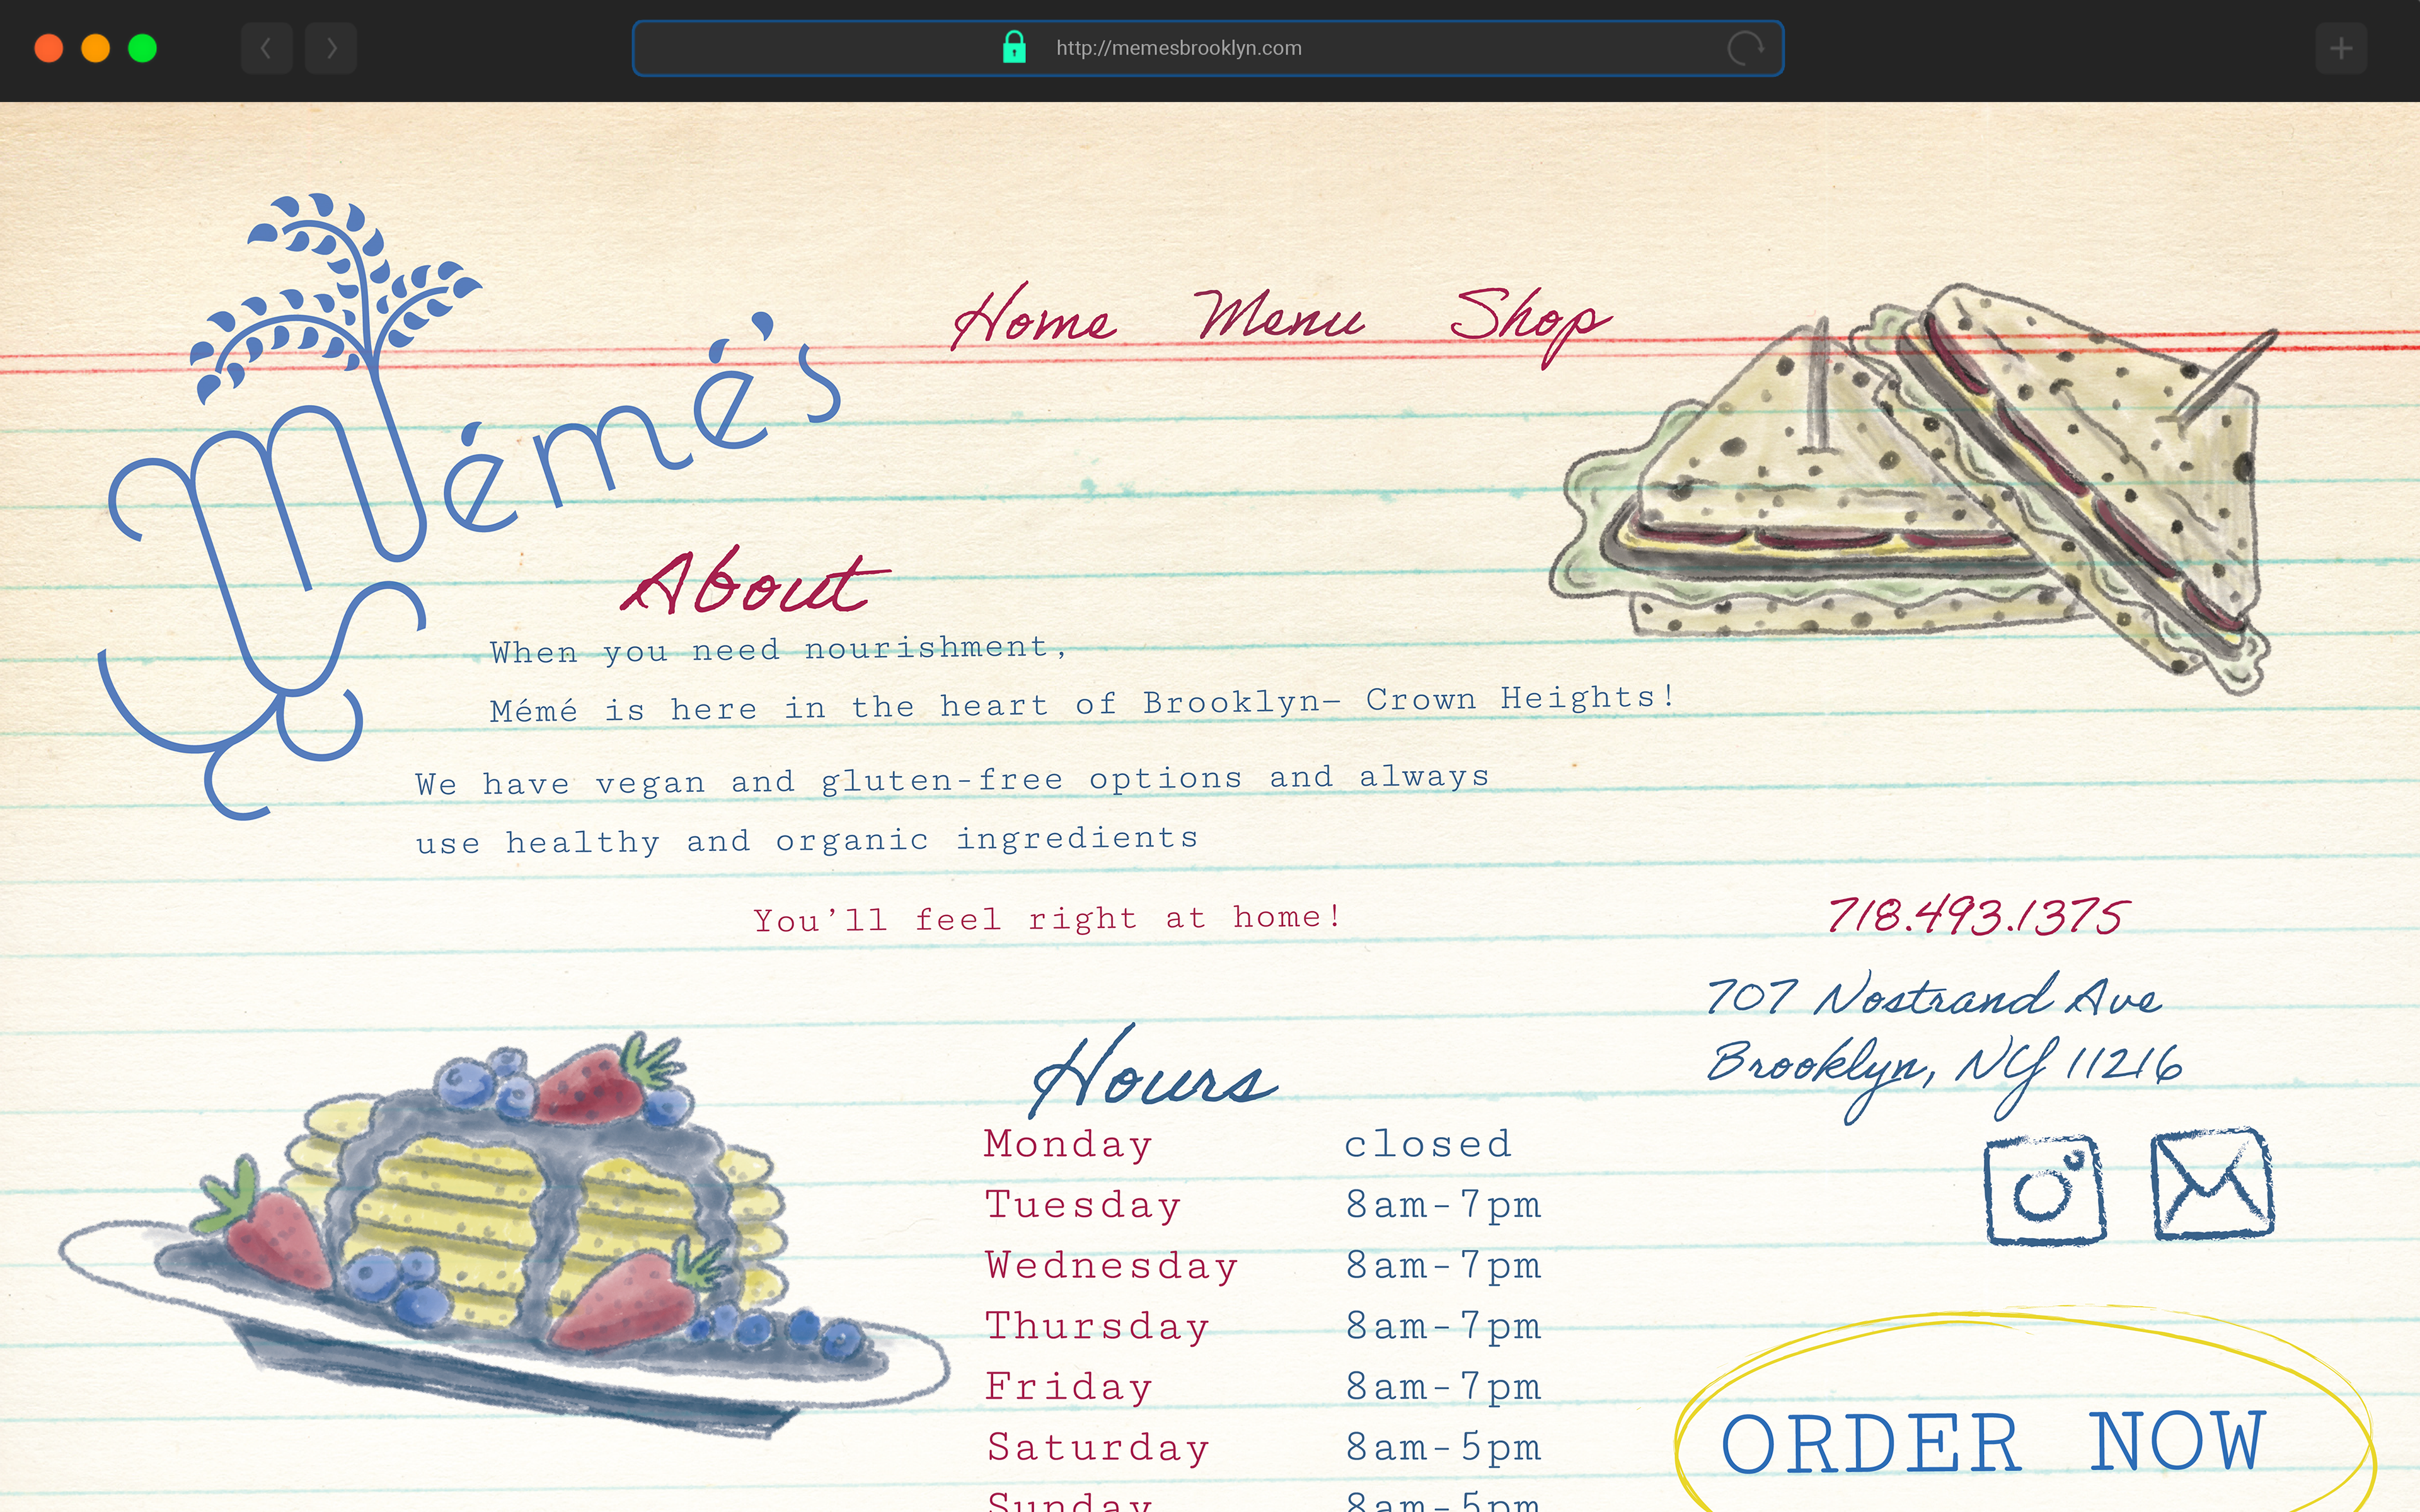 http://memesbrooklyn.com
Mémé's
Home Menu Shop
About
When you need nourishment,
Mémé is here in the heart of Brooklyn— Crown Heights!
We have vegan and gluten-free options and always
use healthy and organic ingredients
You'll feel right at home!
718.493.1375
707 Nostrand Ave
Brooklyn, NY 11216
Hours
Monday closed
Tuesday 8am-7pm
Wednesday 8am-7pm
Thursday 8am-7pm
Friday 8am-7pm
Saturday 8am-5pm
Sunday 8am-5pm
ORDER NOW